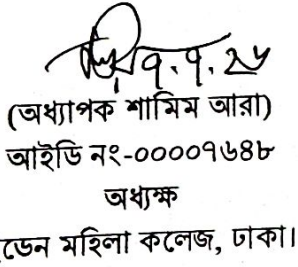 ৭.৭.২৫
(অধ্যাপক শামিম আরা)
আইডি নং-০০০০৭৬৪৮
অধ্যক্ষ
ডেন মহিলা কলেজ, ঢাকা।